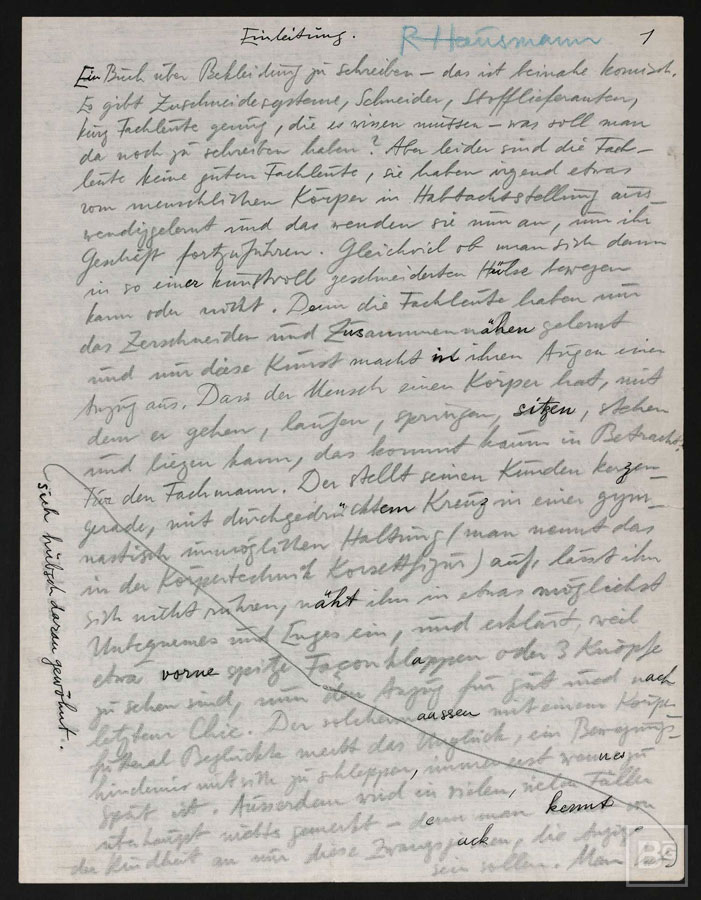 Einleitung.
R Hausmann
1
Ein Buch über Bekleidung zu schreiben – das ist beinahe komisch.
Es gibt Zuschneidesysteme, Schneider, Stofflieferanten,
kurz Fachleute genug, die es wissen müssen – was soll man
da noch zu schreiben haben? Aber leider sind die Fach-
leute keine guten Fachleute, sie haben irgend etwas
vom menschlichen Körper in Habtachtstellung aus-
wendiggelernt und das wenden sie nun an, um ihr
Geschäft fortzuführen. Gleichviel ob man sich dann
in so einer kunstvoll geschneiderten Hülse bewegen
kann oder nicht. Denn die Fachleute haben nur
das Zerschneiden und Zusammennähen gelernt
und nur diese Kunst macht in ihren Augen einen
Anzug aus. Dass der Mensch einen Körper hat, mit
dem er gehen, laufen, springen, sitzen, stehen
und liegen kann, das kommt kaum in Betracht
für den Fachmann. Der stellt seinen Kunden kerzen-
gerade, mit durchgedrücktem Kreuz in einer gym-
nastisch unmöglichen Haltung (man nennt das
in der Körpertechnik Korsettfigur) auf, lässt ihn
sich nicht rühren, näht ihn in etwas möglichst
Unbequemes und Enges ein, und erklärt, weil
etwa vorne spitze Façonklappen oder 3 Knöpfe
zu sehen sind, nun den Anzug für gut und nach
letztem Chic. Der solchermaassen mit einem Körper-
futteral Beglückte merkt das Unglück, ein Bewegungs-
hindernis mit sich zu schleppen, immer erst wenn es zu
spät ist. Ausserdem wird in vielen, vielen Fällen
überhaupt nichts gemerkt – denn man kennt von
der Kindheit an nur diese Zwangsjacken, die Anzüge
sein sollen. Man hat
sich hübsch daran gewöhnt.
BG